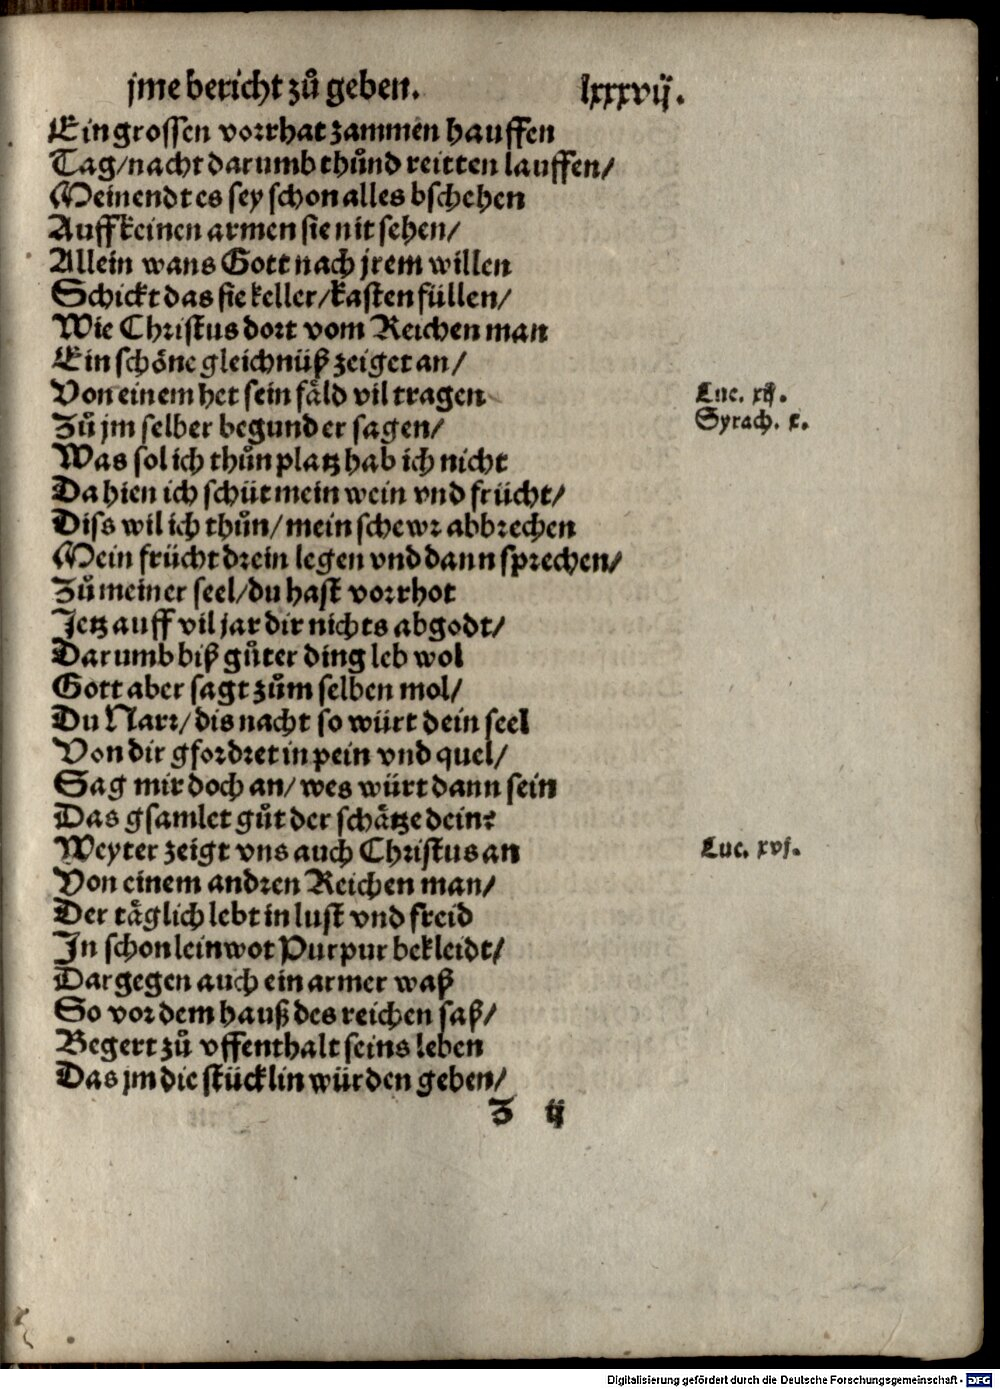 jme bericht zů geben. lxxxvij.
Ein grossen vorrhat zammen hauffen
Tag/nacht darumb thůnd reitten lauffen/
Meinendt es sey schon alles bschehen
Auff keinen armen sie nit sehen/
Allein wans Gott nach jrem willen
Schickt das sie keller/kasten füllen/
Wie Christus dort vom Reichen man
Ein schöne gleichnüß zeiget an/
Von einem het sein fäld vil tragen Luc. xij.
Zů jm selber begund er sagen/ Syrach. x.
Was sol ich thůn platz hab ich nicht
Da hien ich schüt mein wein vnd frücht/
Diss wil ich thůn/mein schewr abbrechen
Mein frücht drein legen vnd dann sprechen/
Zů meiner seel/du hast vorrhot
Jetz auff vil jar dir nichts abgodt/
Darumb biß gůter ding leb wol
Gott aber sagt zům selben mol/
Du Narr/dis nacht so würt dein seel
Von dir gfordret in pein vnd quel/
Sag mir doch an/wes würt dann sein
Das gsamlet gůt der schätze dein?
Weyter zeigt vns auch Christus an Luc. xvj.
Von einem andren Reichen man/
Der täglich lebt in lust vnd freid
In schon leinwot Purpur bekleidt/
Dargegen auch ein armer waß
So vor dem hauß des reichen saß/
Begert zů vffenthalt seins leben
Das jm die stücklin würden geben/
Z ij
Digitalisierung gefördert durch die Deutsche Forschungsgemeinschaft - DFG